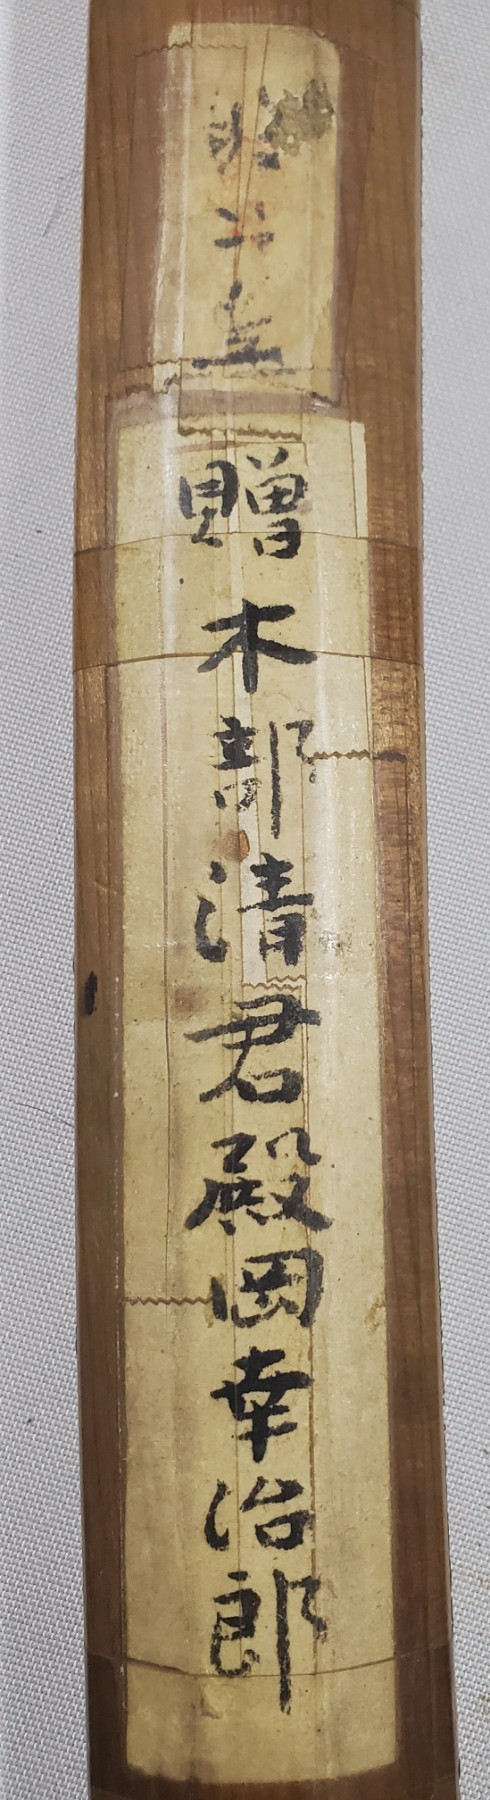 贈木部清君殿岡幸治郎